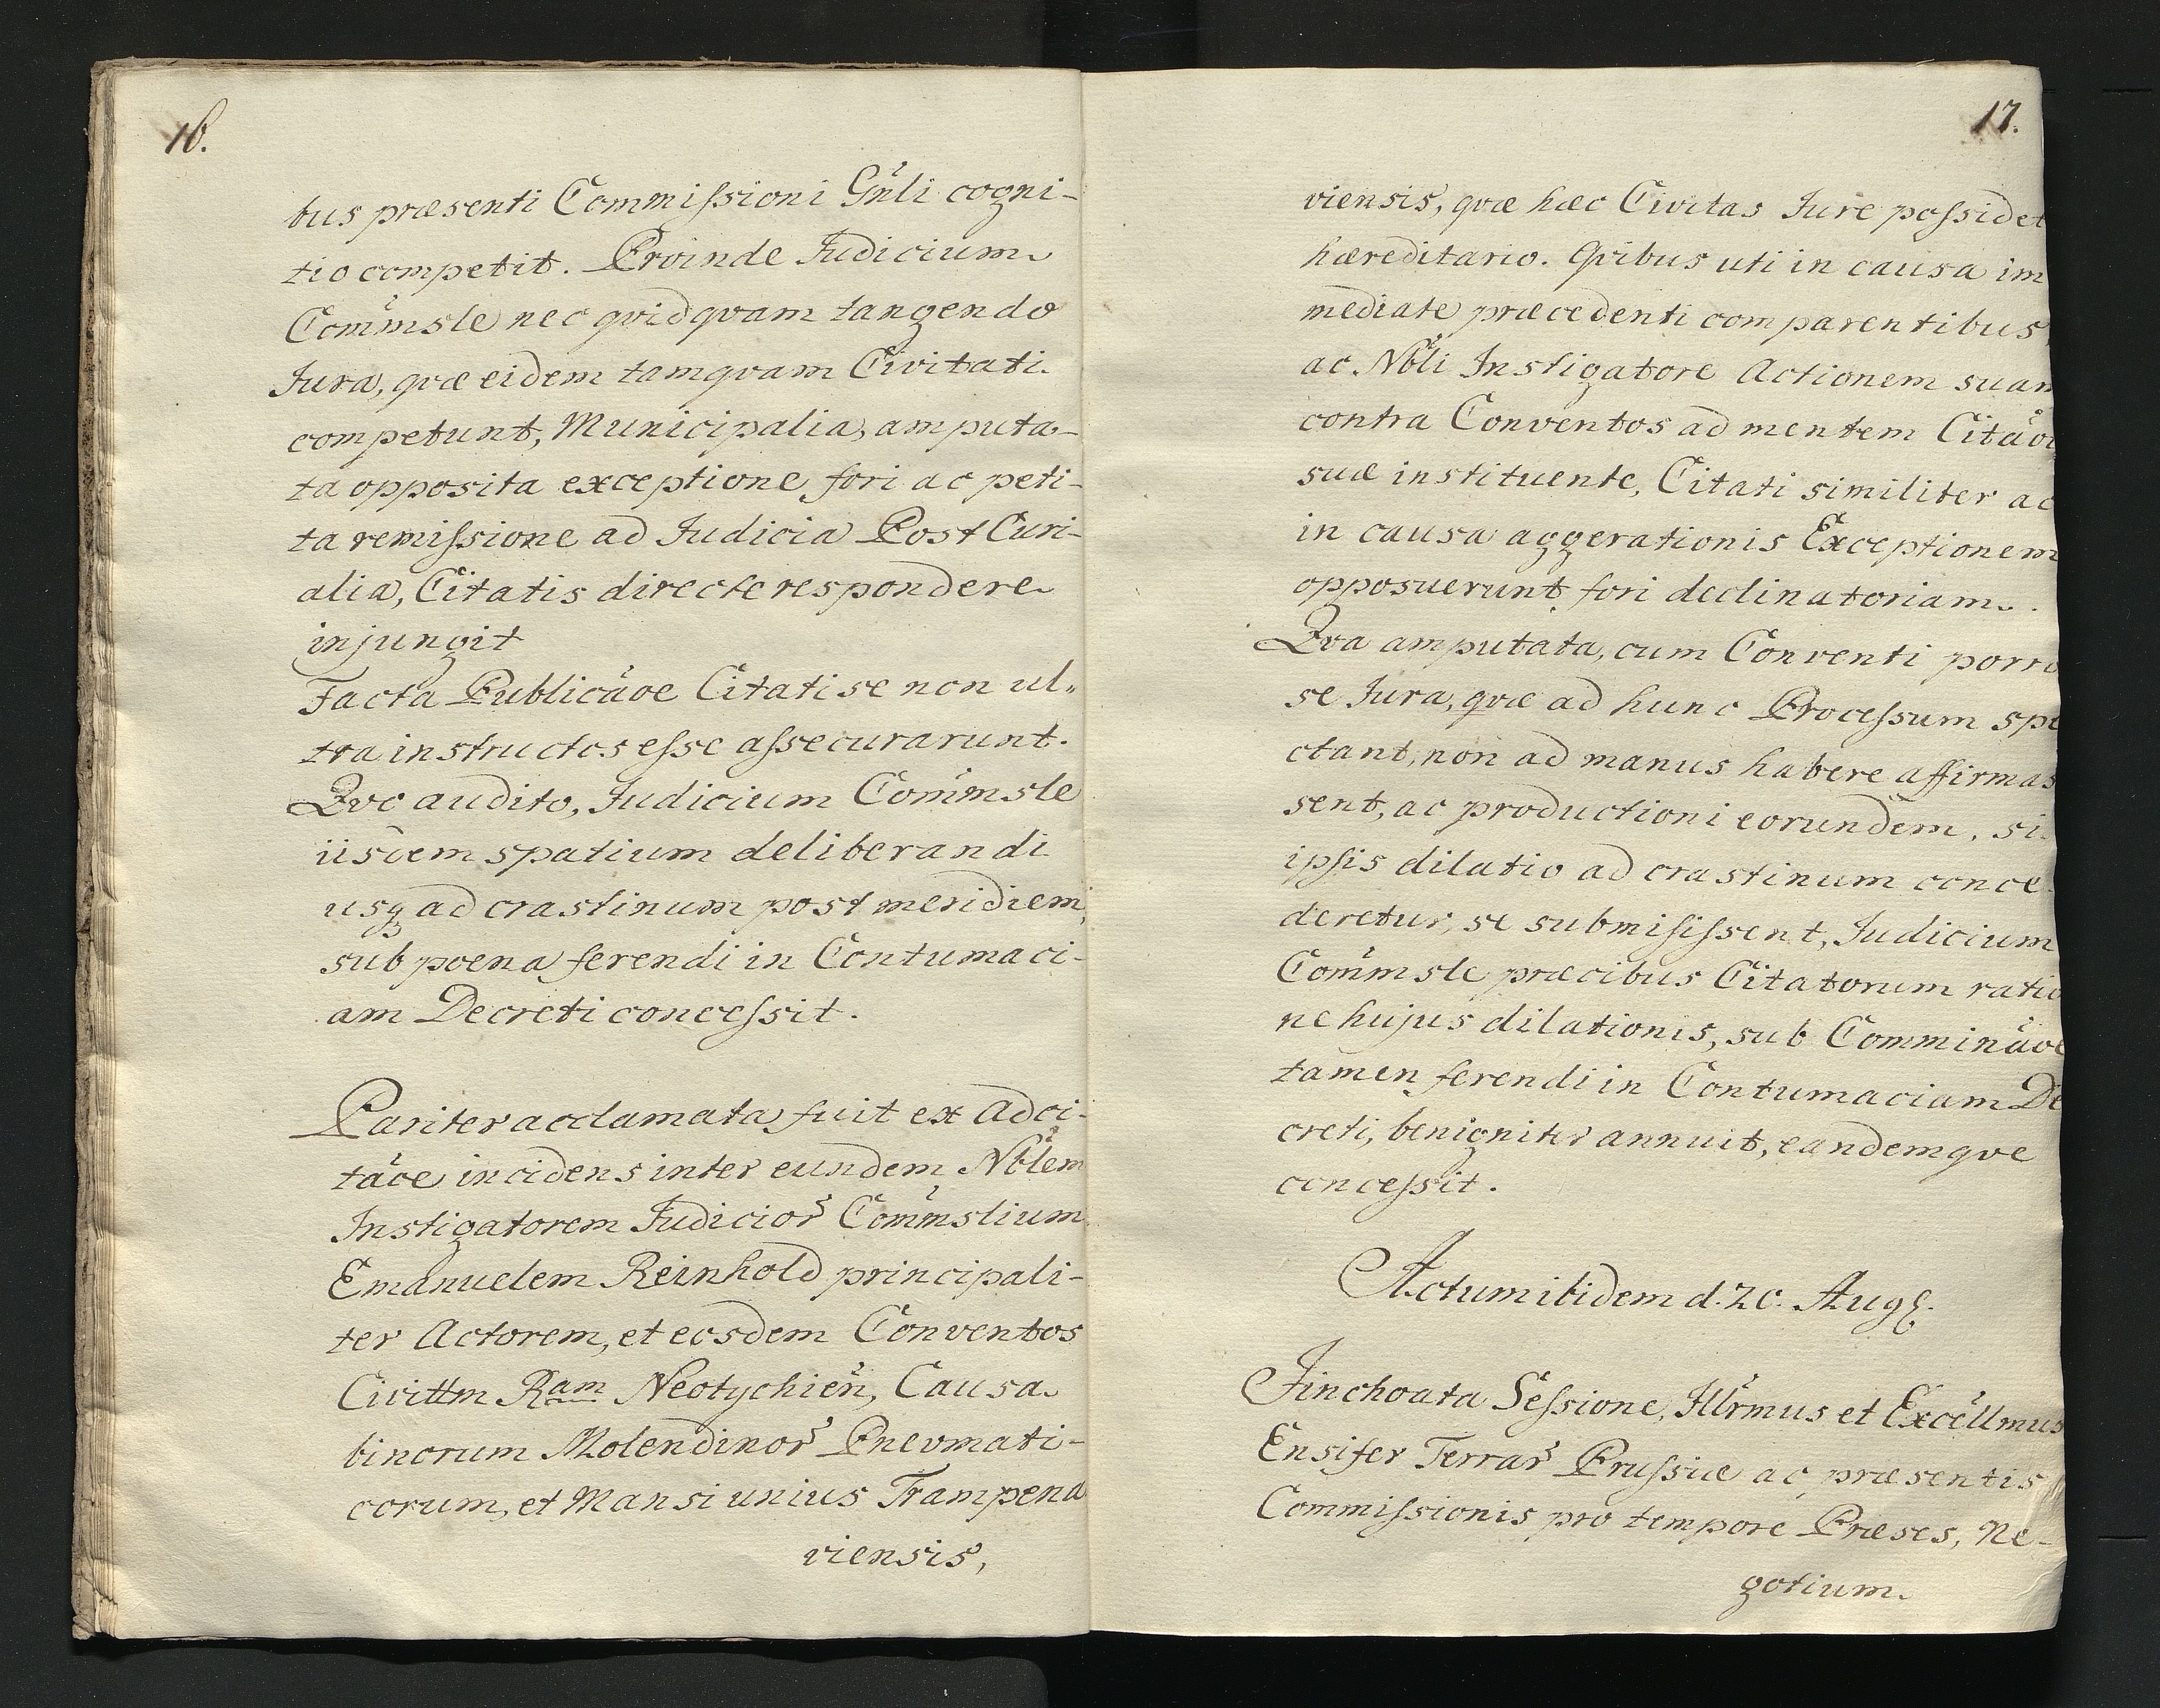 16.
bus præsenti Commissioni Gn̄li cogni-
tio competit. Proinde Judicium
Com̄msle nec qvidqvam tangendo
Jura, qvæ eidem tamqvam Civitati
competunt, Municipalia, amputa-
ta opposita exceptione fori ac peti-
ta remissione ad Judicia Post Curi-
alia, Citatis directe respondere
injungit
Facta Publicãoe Citati se non ul„
tra instructos esse assecurarunt.
Qvo audito, Judicium Com̄msle
iisdem spatium deliberandi
usq ad crastinum post meridiem,
sub poena ferendi in Contumaci-
am Decreti concessit.
Pariter acclamata fuit ex Adci-
tãoe incidens inter eundem Nõlem
Instigatorem Judicior̃ Com̄mslium
Emanuelem Reinhold principali-
ter Actorem, et eosdem Conventos
Civittm Ram Neotychien̄, Causa
binorum Molendinor̃ Pnevmati-
corum, et Mansi unius Trampena
viensis,
17.
viensis, qvæ hæc Civitas Jure possidet
hæreditario. Qvibus uti in causa im
mediate præcedenti comparentibus,
ac Nõli Instigatore Actionem suam
contra Conventos ad mentem Citãoi
suæ instituente, Citati similiter ac
in causa aggerationis Exceptionem
opposuerunt fori declinatoriam.
Qva amputata, cum Conventi porro
se Jura, qvæ ad hunc Processum spe
ctant, non ad manus habere affirmas
sent, ac productioni eorundem, si
ipsis dilatio ad crastinum conce
deretur, se submisissent, Judicium
Com̄msle præcibus Citatorum ratio
ne hujus dilationis, sub Comminãoe
tamen ferendi in Contumaciam De
creti, benigniter annuit, eandemqve
concessit.
Actum ibidem d. 20. Aug.
Jinchoata Sessione, Illr̃mus et Excellmus
Ensifer Terrar̃ Prussiæ ac præsentis
Commissionis pro tempore Præses, Ne-
gotium